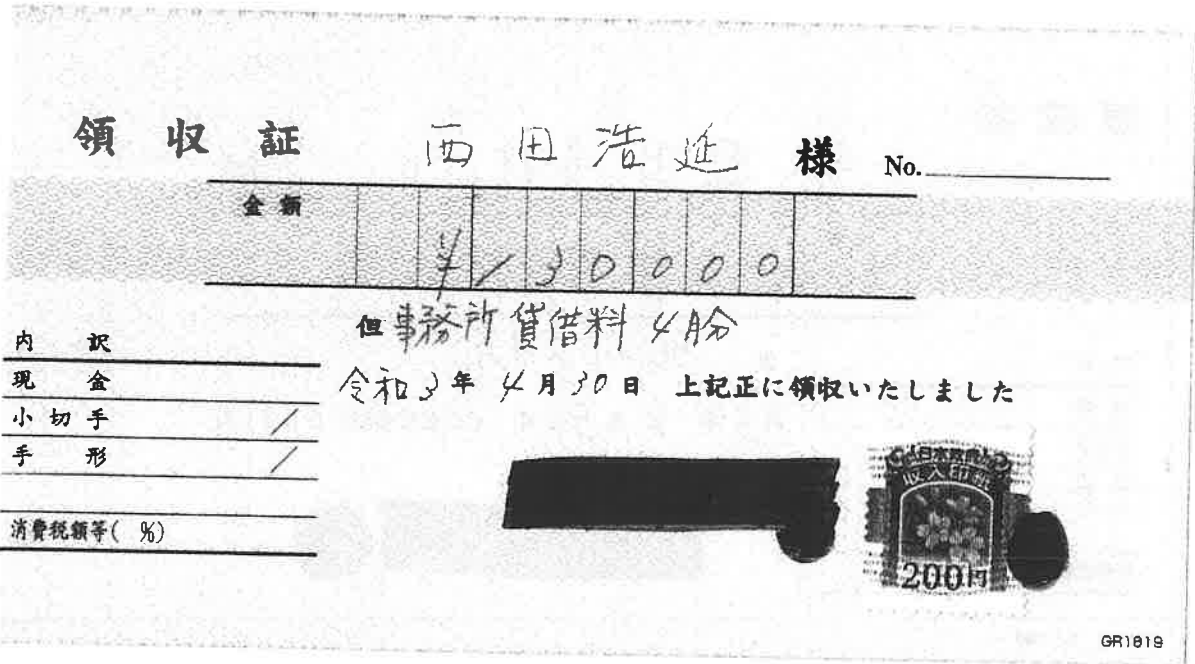 領収証 西田浩延 様 No.
金額 ¥130000
但 事務所賃借料 4月分
令和3年4月30日 上記正に領収いたしました
内訳
現金
小切手 /
手形 /
消費税額等( %)
日本政府
収入印紙
200円
GR1819